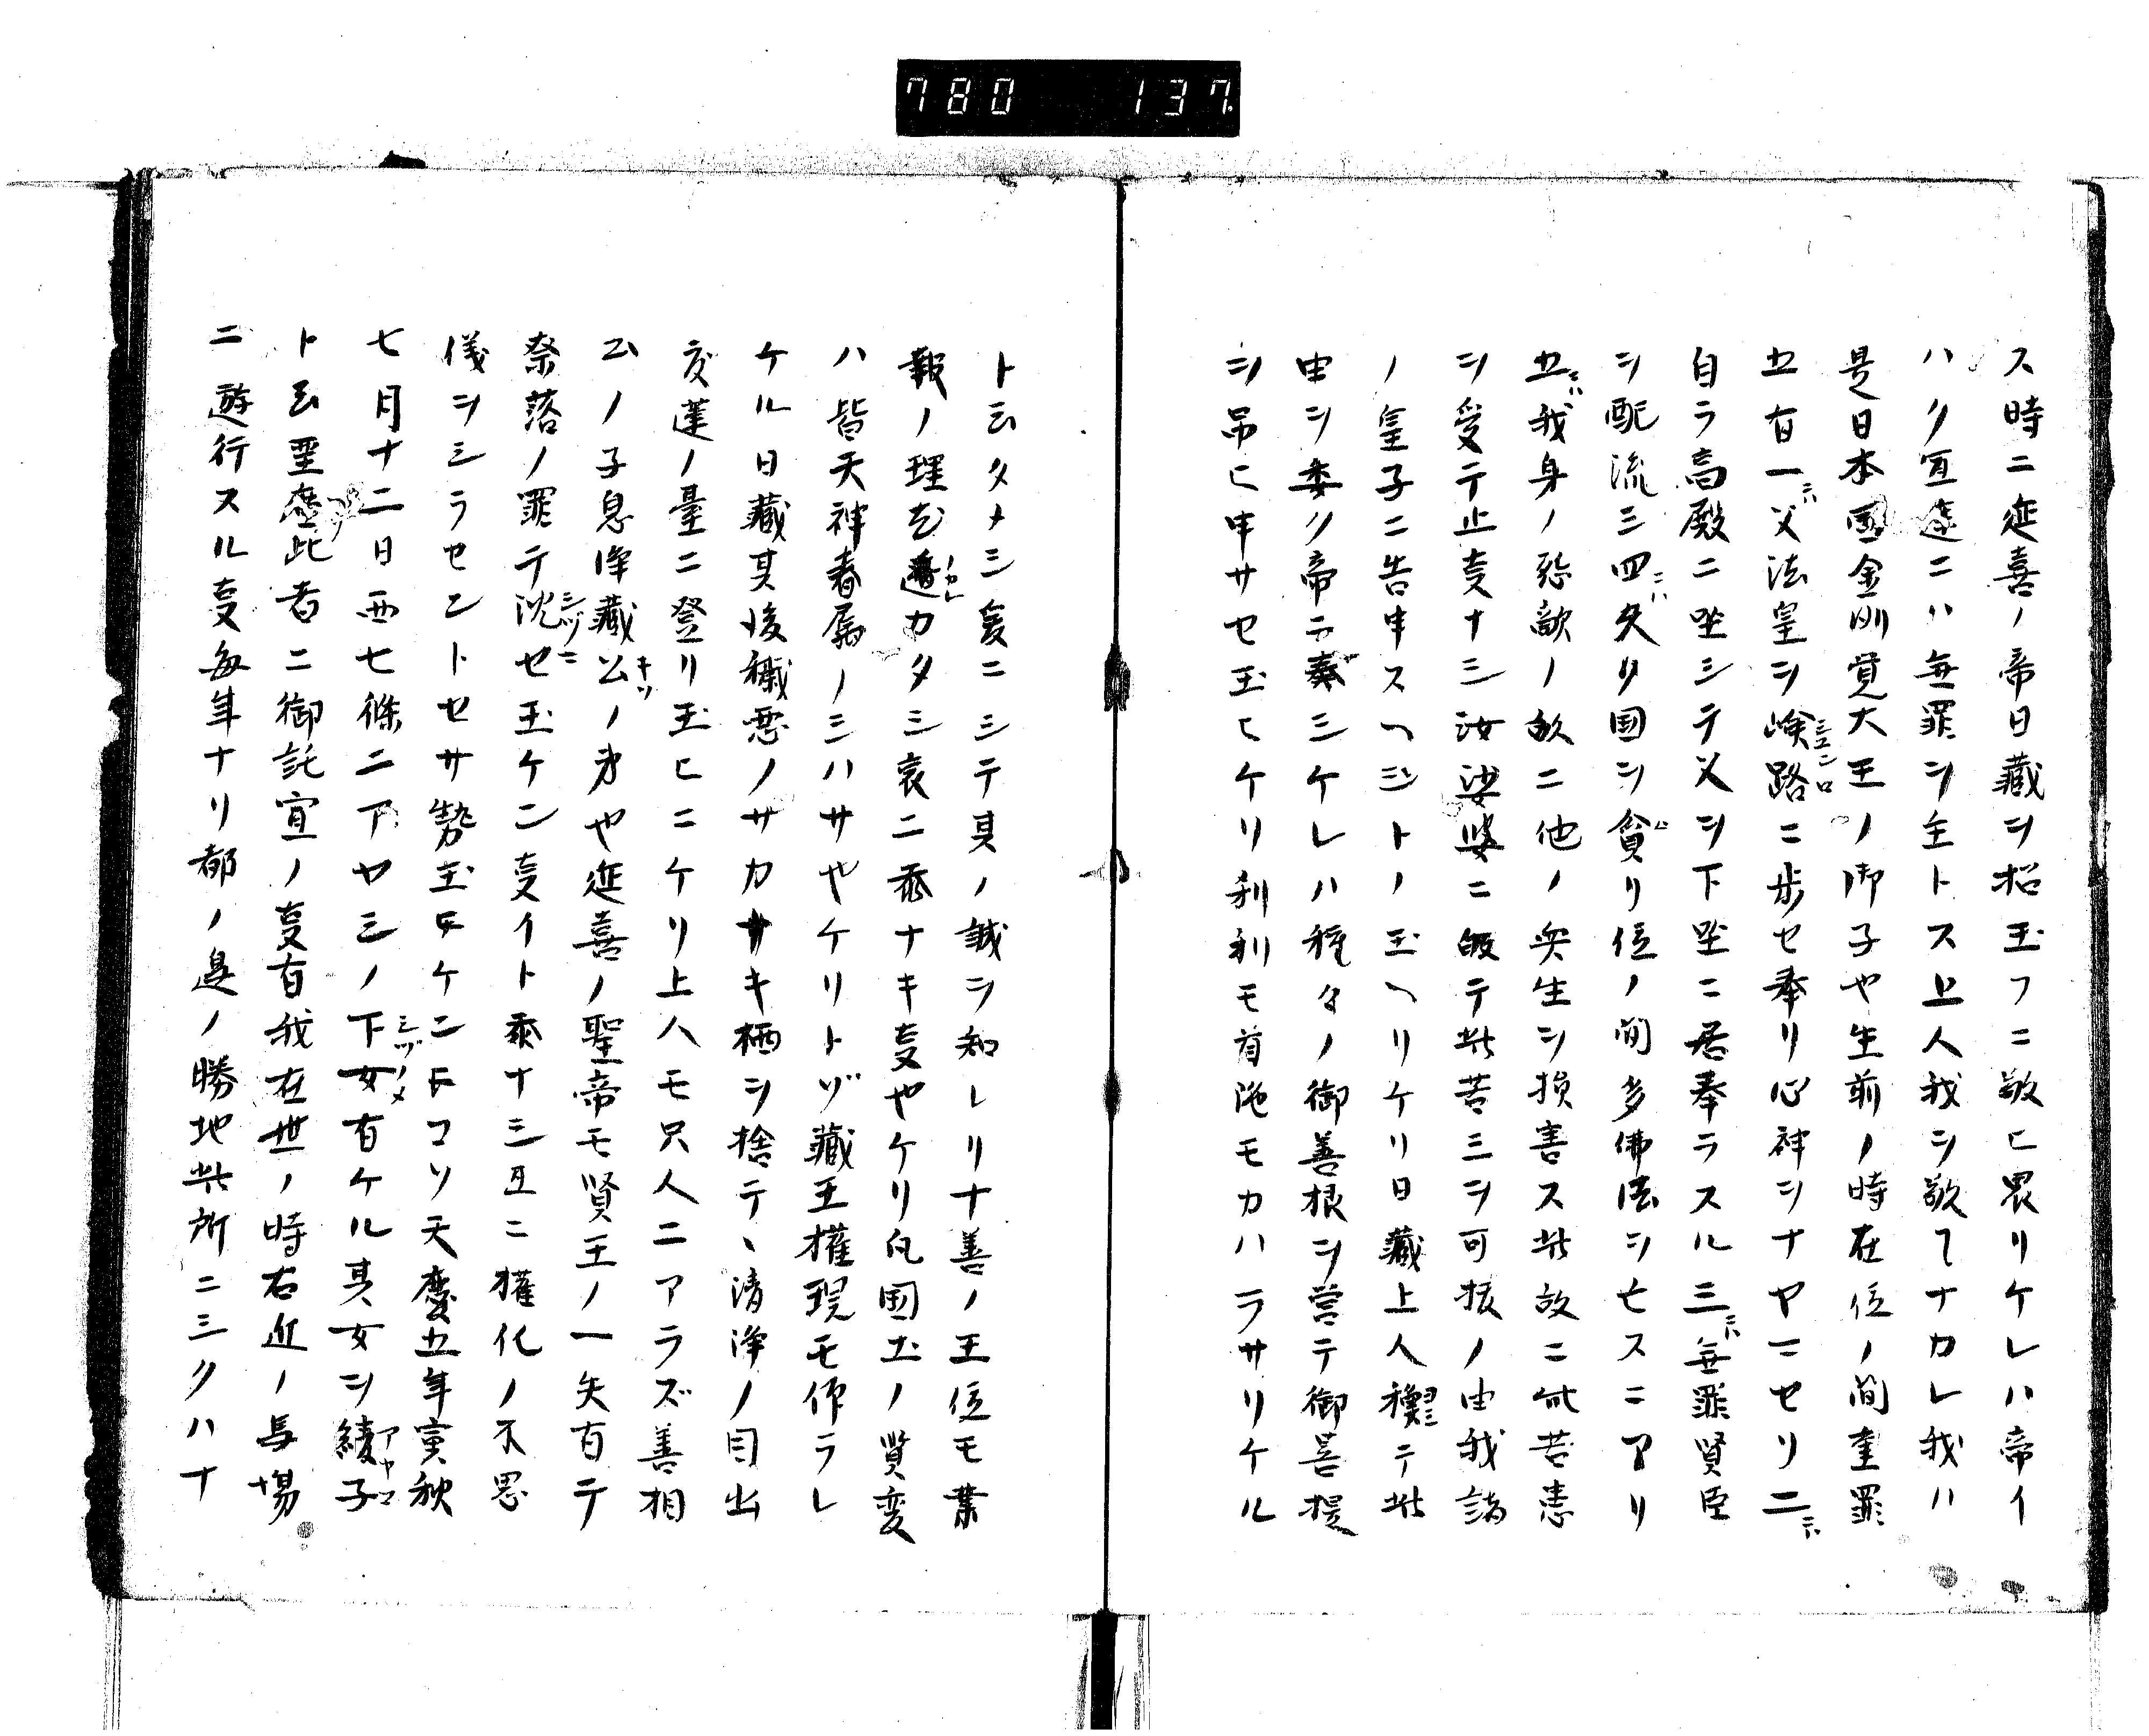 780 137
ス時ニ延喜ノ帝日藏ヲ招玉フニ敬ヒ畏リケレハ帝イ
ハク冥途ニハ無罪ヲ主トス上人我ヲ敬フナカレ我ハ
是日本國金剛覚大王ノ御子也生前ノ時在位ノ間重罪
五有一ニハ父法皇ヲ嶮路ニ歩セ奉リ心神ヲナヤマセリ二ニハ
自ラ高殿ニ坐シテ父ヲ下坐ニ居奉ラスル三ニハ無罪賢臣
ヲ配流ミ四ニハ久ク国ヲ貪リ位ノ間多佛法ヲ亡スニアリ
五ニハ我身ノ怨敵ノ故ニ他ノ衆生ヲ損害ス此故ニ此苦患
ヲ受テ止叓ナシ汝娑婆ニ皈テ此苦ミヲ可抜ノ由我諸
ノ皇子ニ告申スヘシトノ玉ヘリケリ日藏上人穌テ此
由ヲ委ク帝ニ奏ミケレハ種々ノ御善根ヲ営テ御菩提
ヲ吊ヒ申サセ玉ヒケリ利利モ首陁モカハラサリケル
ト云タメシ爰ニシテ其ノ誠ヲ知レリ十善ノ王位モ業
報ノ理を遁カタシ哀ニ忝ナキ叓也ケリ凡国土ノ賢変
ハ皆天神眷属ノミハサ也ケリトゾ藏王權現モ作ラレ
ケル日藏其後穢悪ノサカサキ栖ヲ捨テヽ清浄ノ目出
度蓮ノ臺ニ登リ玉ヒニケリ上人モ只人ニアラズ善相
公ノ子息浄藏公ノ弟也延喜ノ聖帝モ賢王ノ一矢有テ
奈落ノ罪テ沈セ玉ケン叓イト忝ナミ且ニ權化ノ不思
儀ヲシラセントセサ勢玉ヒケントコソ天慶五年寅秋
七月十二日西七條ニアヤシノ下女有ケル其女ヲ綾子
ト云聖庿此者ニ御託宣ノ叓有我在世ノ時右近ノ馬場
ニ遊行スル叓毎年ナリ都ノ邊ノ勝地此所ニシクハナ